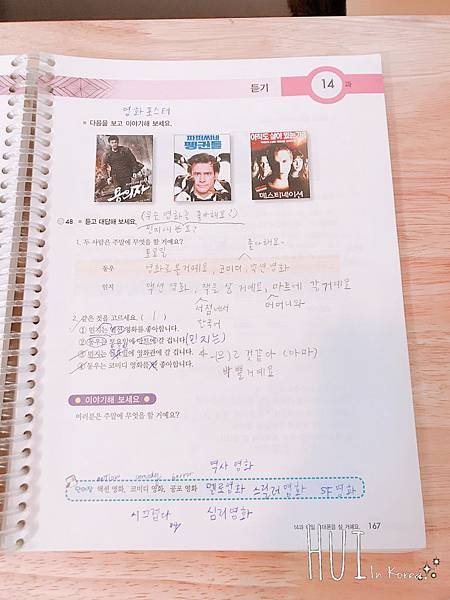 듣기 14 과
영화 포스터
다음을 보고 이야기해 보세요.
용의자
파퍼씨네 펭귄들
데스티네이션
48 듣고 대답해 보세요. (무슨 영화를 좋아해요?)
1. 두 사람은 주말에 무엇을 할 거예요? 좋아해요.
토요일
동우 영화를 볼 거예요, 코미디, 액션 영화
민지 액션 영화, 책을 살 거예요, 마트에 갈 거예요
서점에서 어머니와
한국어
2. 같은 것을 고르세요. ( 1 )
① 민지는 액션 영화를 좋아합니다.
② 동우는 토요일에 마트에 갈 겁니다. (민지는)
③ 민지는 일에 영화관에 갈 겁니다. 것 같아 (아마)
④ 동우는 코미디 영화를 안 좋아합니다. 바쁠 거예요
이야기해 보세요
여러분은 주말에 무엇을 할 거예요?
action comedy horror 역사 영화
단어장 액션 영화, 코미디 영화, 공포 영화 멜로영화 스릴러 영화 SF 영화
시끄럽다 심리영화
167
HUI
In Korea